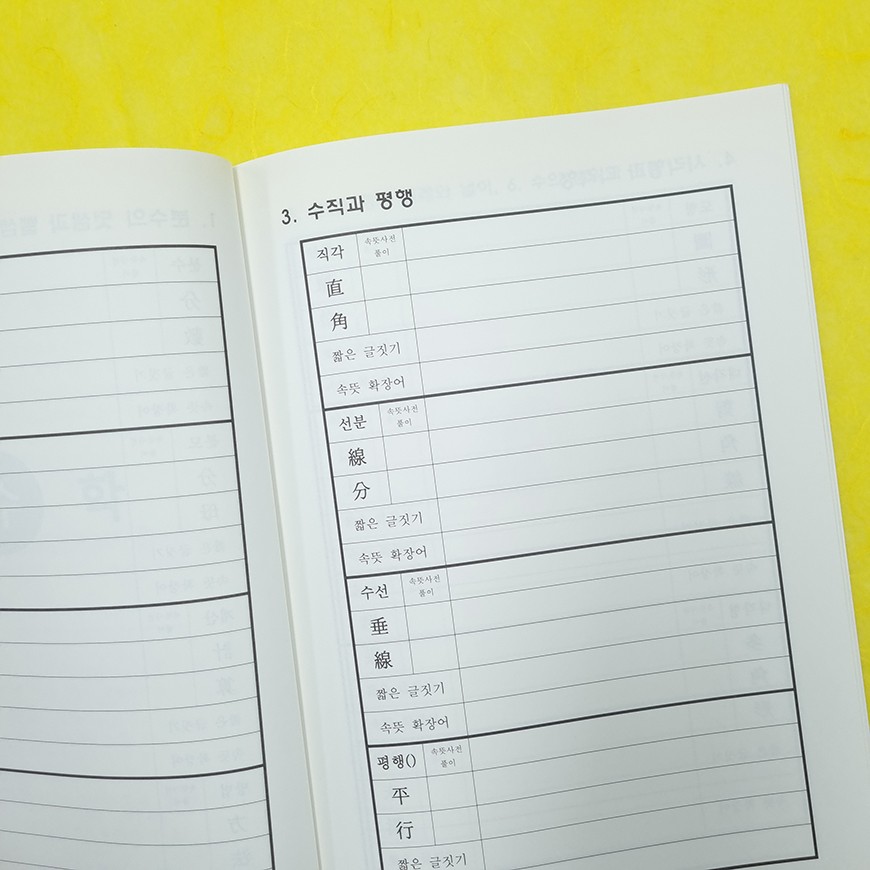 3. 수직과 평행
직각 속뜻사전 풀이
直
角
짧은 글짓기
속뜻 확장어
선분 속뜻사전 풀이
線
分
짧은 글짓기
속뜻 확장어
수선 속뜻사전 풀이
垂
線
짧은 글짓기
속뜻 확장어
평행() 속뜻사전 풀이
平
行
짧은 글짓기